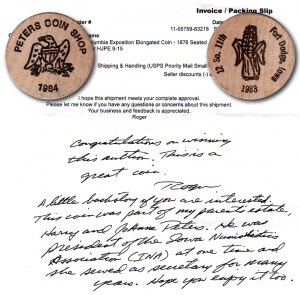 Invoice / Packing Slip
PETERS COIN SHOP
1984
12 So. 11th
Fort Dodge, Iowa
1983
11-05759-83218
Columbia Exposition Elongated Coin - 1876 Seated
HJPE 9-15
Shipping & Handling (USPS Priority Mail Small
Seller discounts (-)
I hope this shipment meets your complete approval.
Please let me know if you have any questions or concerns about this shipment.
Your business and feedback is appreciated.
Roger
Congratulations on winning
this auction. This is a
great coin.
Roger
A little backstory if you are interested.
This coin was part of my parents estate,
Harry and JoAnne Peters. He was
President of the Iowa Numismatics
Association (INA) at one time and
she served as secretary for many
years. Hope you enjoy it too.